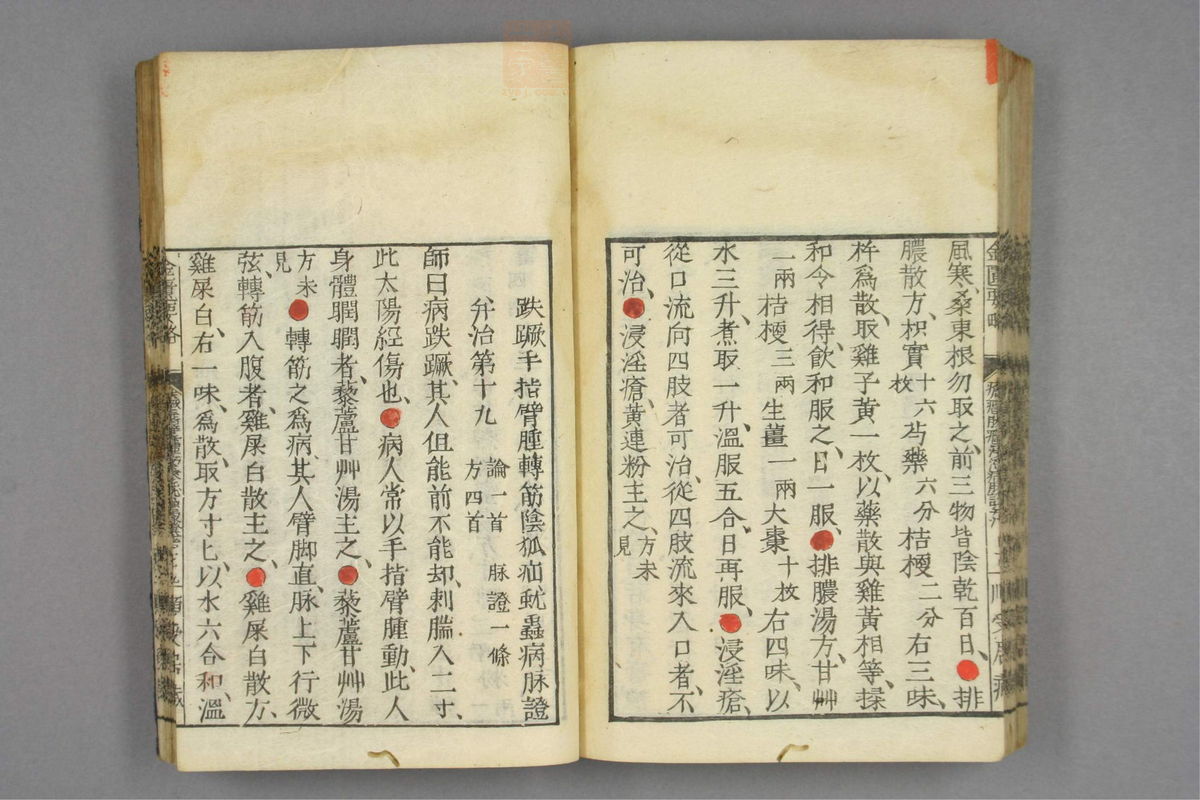 風寒、桑東根勿取之、前三物皆陰乾百日、排
膿散方、枳實十六枚芍藥六分桔梗二分右三味、
杵爲散、取雞子黃一枚、以藥散與雞黃相等、揉
和令相得、飮和服之、日一服、排膿湯方、甘艸
二兩桔梗三兩生薑一兩大棗十枚右四味、以
水三升、煮取一升、溫服五合、日再服、浸淫瘡、
從口流向四肢者可治、從四肢流來入口者、不
可治、浸淫瘡、黃連粉主之、方未見
趺蹶手指臂腫轉筋陰狐疝蚘蟲病脉證
幷治第十九論一首脉證一條方四首
師曰病趺蹶、其人但能前不能却、刺腨入二寸、
此太陽經傷也、病人常以手指臂腫動、此人
身體瞤瞤者、藜蘆甘艸湯主之、藜蘆甘艸湯
方未見轉筋之爲病、其人臂脚直、脉上下行微
弦、轉筋入腹者、雞屎白散主之、雞屎白散方、
雞屎白、右一味、爲散、取方寸匕、以水六合和、溫
金匱要略